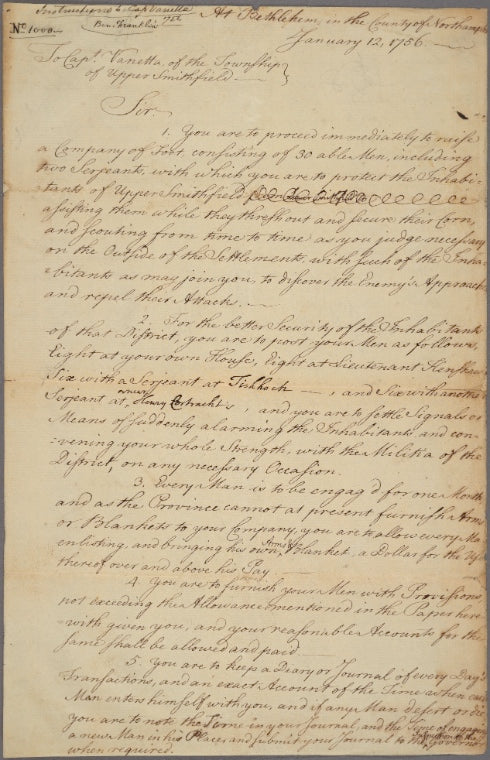 Instructions to Capt Vanetta
Ben. Franklin 1756
No. 1000.
At Bethlehem, in the County of Northampton
January 12, 1756.
To Capt. Vanetta, of the Township
of Upper Smithfield
Sir,
1. You are to proceed immediately to raise
a Company of Foot, consisting of 30 able Men, including
two Serjeants, with which you are to protect the Inhabi-
tants of Upper Smithfield
assisting them while they thresh out and secure their Corn,
and scouting from time to time as you judge necessary
on the Outside of the Settlements, with such of the Inha-
bitants as may join you, to discover the Enemy's Approaches
and repel their Attacks.
2. For the better Security of the Inhabitants
of that District, you are to post your Men as follows,
Eight at your own House, Eight at Lieutenant
Six with a Serjeant at Tishhock, and Six with another
Serjeant at Henry Cortracht's, and you are to settle Signals or
Means of suddenly alarming the Inhabitants, and con-
vening your whole Strength, with the Militia of the
District, on any necessary Occasion.
3. Every Man is to be engag'd for one Month
and as the Province cannot at present furnish Arms
or Blankets to your Company, you are to allow every Man
enlisting, and bringing his own Arms & Blanket, a Dollar for the Use
thereof over and above his Pay
4. You are to furnish your Men with Provisions
not exceeding the Allowance mentioned in the Paper here-
with given you, and your reasonable Accounts for the
same shall be allowed and paid
5. You are to keep a Diary or Journal of every Day's
Transactions, and an exact Account of the Time when each
Man enters himself with you, and if any Man desert or die
you are to note the Time in your Journal, and the Time of engaging
a new Man in his Place, and submit your Journal to the Governor
when required.